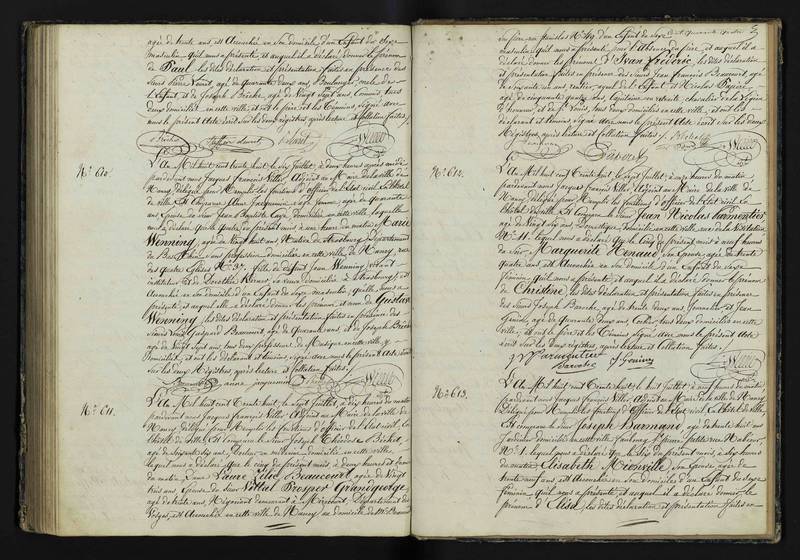 âgée de trente ans, est accouchée en son domicile d'un Enfant du Sexe
masculin, qu'il nous a présenté, et auquel il a déclaré donner le prénom
de Paul, les dites déclaration et présentation faites en présence des
Sieurs Pierre Vairet, âgé de quarante deux ans, Boulanger, oncle de
l'Enfant, et de Joseph Briche, âgé de Vingt Sept ans, Commis, tous
deux domiciliés en cette ville, et ont le père et les témoins, signé avec
nous le présent Acte écrit sur les deux registres, après lecture et Collation faites.
N.º 610.
L'An Mil huit cent trente huit, le Six Juillet, à deux heures après midi
pardevant nous Jacques François Villes, Adjoint au Maire de la ville de
Nancy, délégué pour Remplir les fonctions d'officier de l'Etat civil, à l'hôtel
de ville, Est comparue Anne Jacquemin, sage femme, âgée de quarante
ans, Epouse du Sieur Jean Baptiste Caye, domiciliée en cette ville, laquelle
nous a déclaré que le quatre du présent mois à une heure du matin, Marie
Wenning, âgée de Vingt huit ans, Native de Strasbourg, Département
du Bas Rhin, sans profession, domiciliée en cette ville de Nancy, rue
des quatre Eglises N.º 37, fille de défunt Jean Wenning, vivant
instituteur, et de Dorothée, sa veuve, domiciliée à Strasbourg, est
accouchée en son domicile d'un Enfant du Sexe masculin, qu'elle nous a
présenté, et auquel elle a déclaré donner les prénom et nom de Gustave
Wenning, les dites déclaration et présentation faites en présence des
Sieurs Gaspard Beaumont, âgé de quarante ans, et de Joseph Briche
âgé de Vingt Sept ans, tous deux professeurs de Musique, en cette ville, y
Domiciliés, et ont les déclarant et témoins, signé avec nous le présent Acte écrit
sur les deux Registres, après lecture et Collation faites.
anne jacquemin
N.º 611.
L'An Mil huit cent trente huit, le Sept Juillet, à dix heures du matin
pardevant nous Jacques François Villes, Adjoint au Maire de la ville de
Nancy, délégué pour Remplir les fonctions d'officier de l'Etat civil, à
l'hôtel de ville, Est comparu le Sieur Joseph Théodore Bichet,
âgé de Soixante dix ans, Docteur en médecine, domicilié en cette ville,
lequel nous a déclaré, que le cinq du présent mois, à deux heures et demi
du matin, Dame Laure Lélie Beaucourt, âgée de Vingt
trois ans, Epouse du Sieur Vittal Prosper Grandgeorge
âgé de trente ans, Négociant demeurant à Mirecourt, Département des
Vosges, est accouchée en cette ville de Nancy au domicile de
N.º 49, d'un Enfant du Sexe
masculin, qu'il nous a présenté pour l'absence du père, et auquel il a
déclaré donner les prénoms d'Ivan Frédéric, les dites déclaration
et présentation faites en présence des Sieurs Jean François Beaucourt, âgé
de Soixante six ans, rentier, ayeul de l'Enfant, et Nicolas
âgé de cinquante quatre ans, Capitaine en retraite, chevalier de la Légion
d'honneur, et de St Louis, tous deux domiciliés en cette ville, et ont les
déclarant et témoins, signé avec nous le présent Acte écrit sur les deux
Registres, après lecture et Collation faites.
N.º 612.
L'An Mil huit cent trente huit, le Sept Juillet, à onze heures du matin
pardevant nous Jacques François Villes, Adjoint au Maire de la ville de
Nancy, délégué pour Remplir les fonctions d'officier de l'Etat civil, à
l'hôtel de ville, Est comparu le Sieur Jean Nicolas Parmentier
âgé de Vingt six ans, Domestique, domicilié en cette ville, rue de la Visitation
N.º 11, lequel nous a déclaré que le cinq du présent mois, à neuf heures
du soir, Marguerite Renaud, son Epouse, âgée de trente
quatre ans, est accouchée en son domicile d'un Enfant du Sexe
féminin, qu'il nous a présenté, et auquel il a déclaré donner le prénom
de Christine, les dites déclaration et présentation faites en présence
des Sieurs Joseph Baroche, âgé de trente deux ans, Journalier, et Jean
Génin, âgé de quarante deux ans, Cocher, tous deux domiciliés en cette
ville, et ont le père et les témoins signé avec nous le présent Acte
écrit sur les deux registres, après lecture et Collation faites.
Parmentier
N.º 613.
L'An Mil huit cent trente huit, le huit Juillet, à neuf heures du matin
pardevant nous Jacques François Villes, Adjoint au Maire de la ville de Nancy
délégué pour Remplir les fonctions d'officier de l'Etat civil, à l'hôtel de ville,
Est comparu le Sieur Joseph Barmand, âgé de trente huit ans
Jardinier, domicilié en cette ville, faubourg St Pierre, petite rue
N.º 1, lequel nous a déclaré que le six du présent mois, à six heures
du matin, Elisabeth Mionville, son Epouse, âgée de
trente neuf ans, est accouchée en son domicile d'un Enfant du Sexe
féminin, qu'il nous a présenté, et auquel il a déclaré donner le
prénom d'Elisa, les dites déclaration et présentation faites en